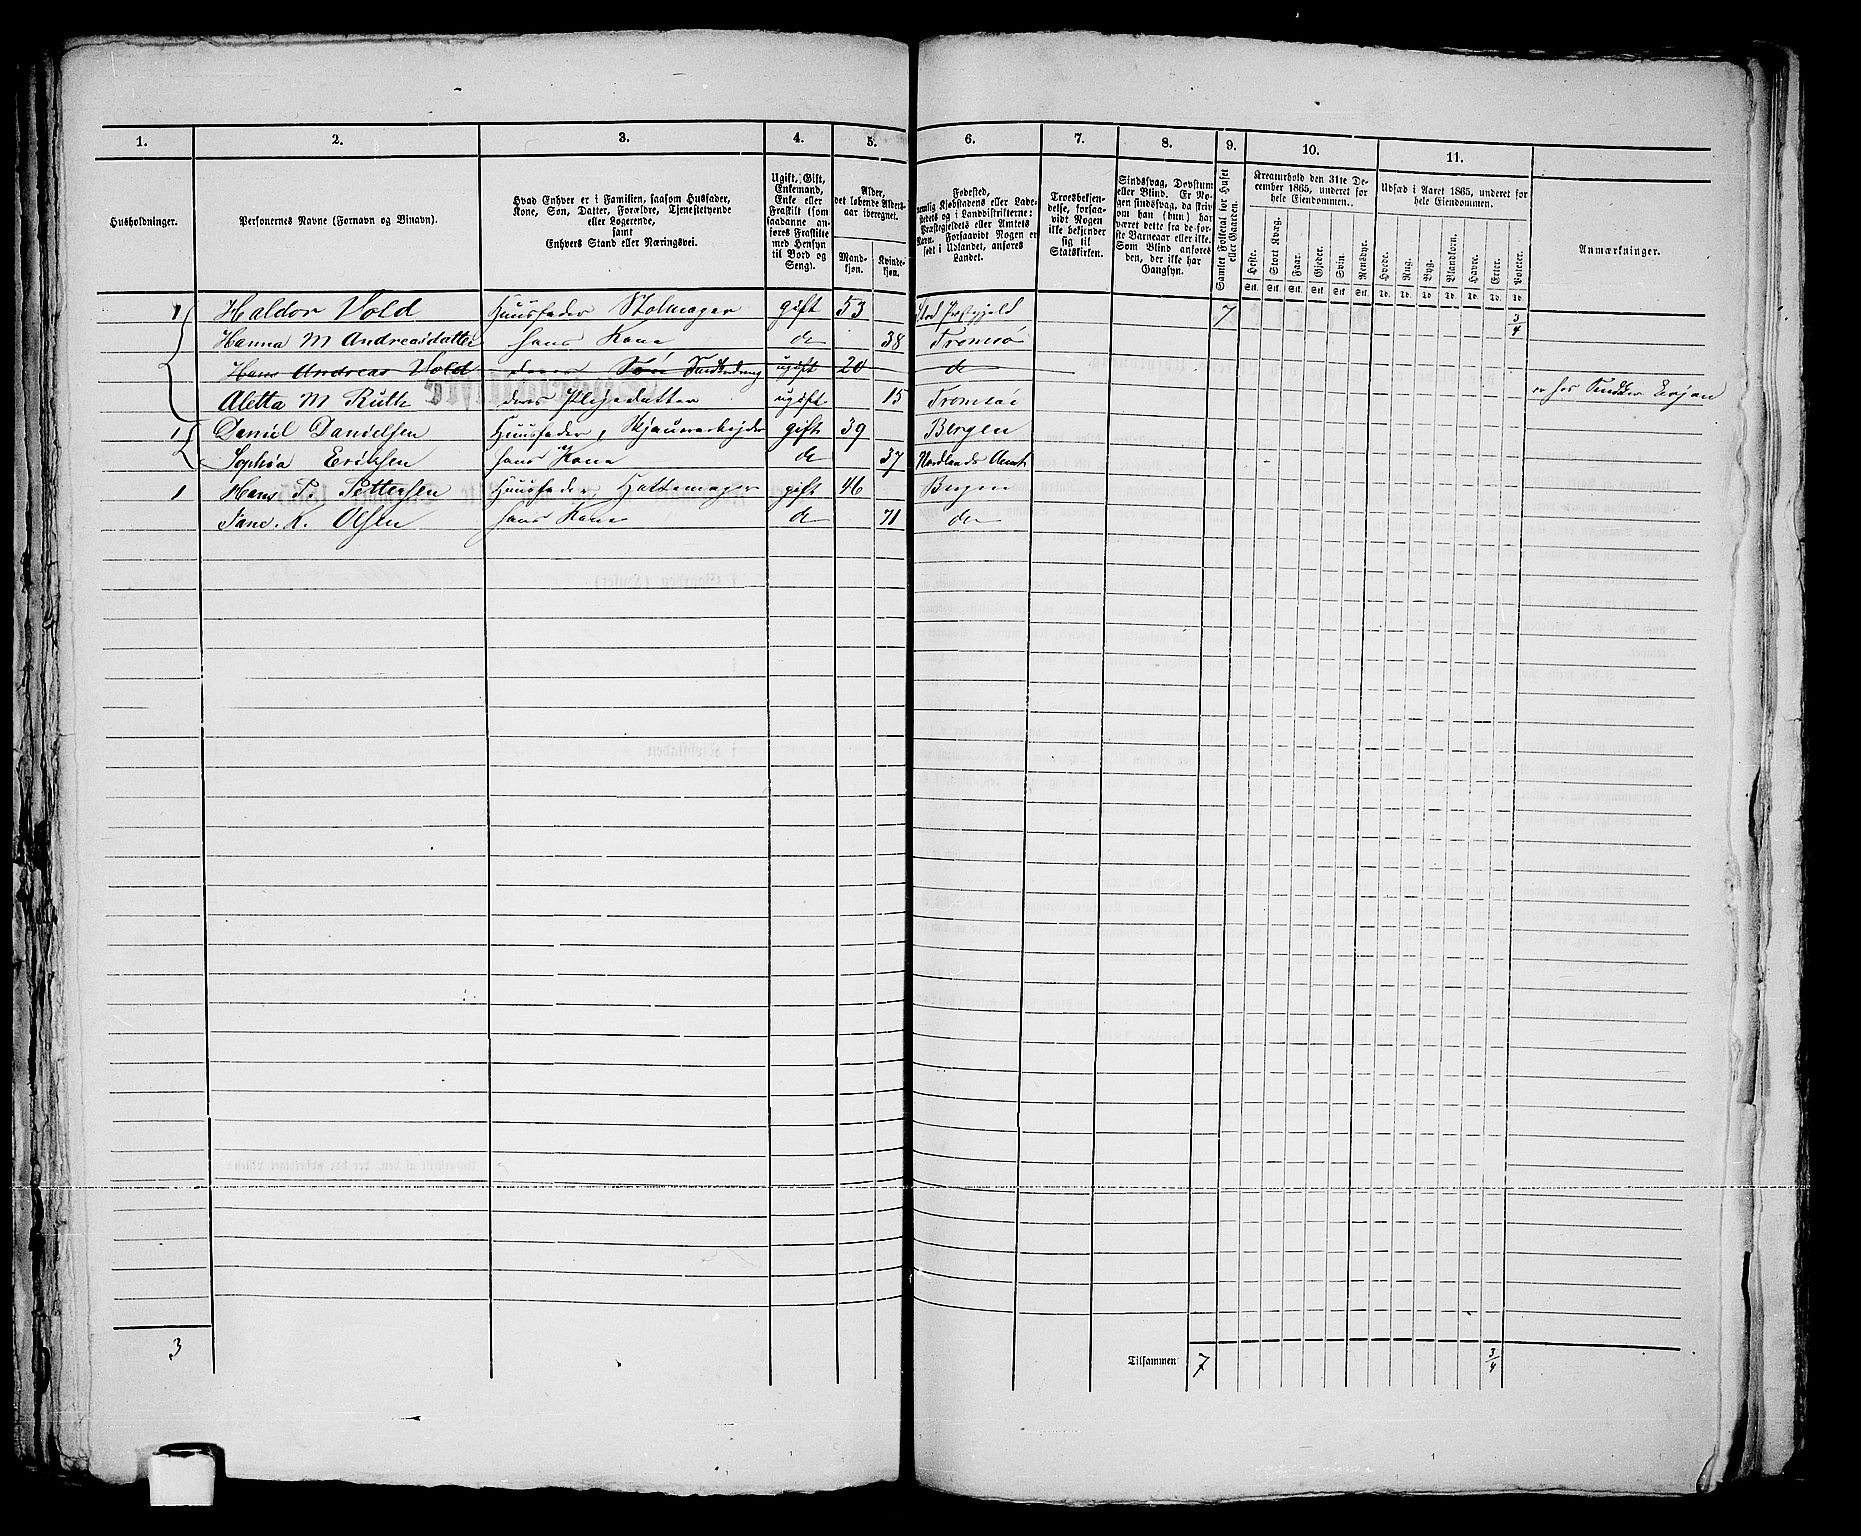 1. 2. 3. 4. 5. 6. 7. 8. 9. 10. 11.
Husholdninger.
Personernes Navne (Fornavn og Binavn).
Hvad Enhver er i Familien, saasom Husfader,
Kone, Søn, Datter, Forældre, Tjenestetyende
eller Logerende,
samt
Enhvers Stand eller Næringsvei.
Ugift, Gift,
Enkemand,
Enke eller
Fraskilt (som
saadanne an-
føres Fraskilte
med Hensyn
til Bord og
Seng).
Alder,
det løbende Alders-
aar iberegnet.
Mand-
kjøn.
Kvinde-
kjøn.
Fødested,
nemlig Kjøbstadens eller Lade-
stedets og i Landdistrikterne:
Præstegjeldets eller Amtets
Navn. Forsaavidt Nogen er
født i Udlandet, anføres
Landet.
Troesbekjen-
delse, forsaa-
vidt Nogen
ikke bekjender
sig til
Statskirken.
Sindssvag, Døvstum
eller Blind. Er No-
gen sindssvag, da skriv
om han (hun) har
været dette fra de for-
ste Barneaar eller ikke.
Som Blind anføres
den, der ikke har
Gangsyn.
Samlet Folketal for Huset
eller Gaarden.
Kreaturhold den 31te De-
cember 1865, underet for
hele Eiendommen.
Heste. Stort Kvæg. Faar. Gjeder. Svin. Rensdyr.
Stk. Stk. Stk. Stk. Stk. Stk.
Udsæd i Aaret 1865, underet for
hele Eiendommen.
Hvede. Rug. Byg. Blandkorn. Havre. Erter. Poteter.
Td. Td. Td. Td. Td. Td. Td.
Anmærkninger.
1 Haldor Vold Huusfader Stolmager gift 53 Præstgjeld 7 3/4
Hanna M Andreasdatter hans Kone do 38 Tromsø
Hans Andreas Vold deres Søn ugift 20 do
Aletta M Ruth deres Pleiedatter ugift 15 Tromsø er hos
1 Daniel Danielsen Huusfader, Skjauerarbejder gift 39 Bergen
Sophia Eriksen hans Kone do 37 Nordlands Amt
1 Hans P. Pettersen Huusfader, Hattemager gift 46 Bergen
Jane K. Olsen hans Kone do 71 do
3 Tilsammen 7 3/4